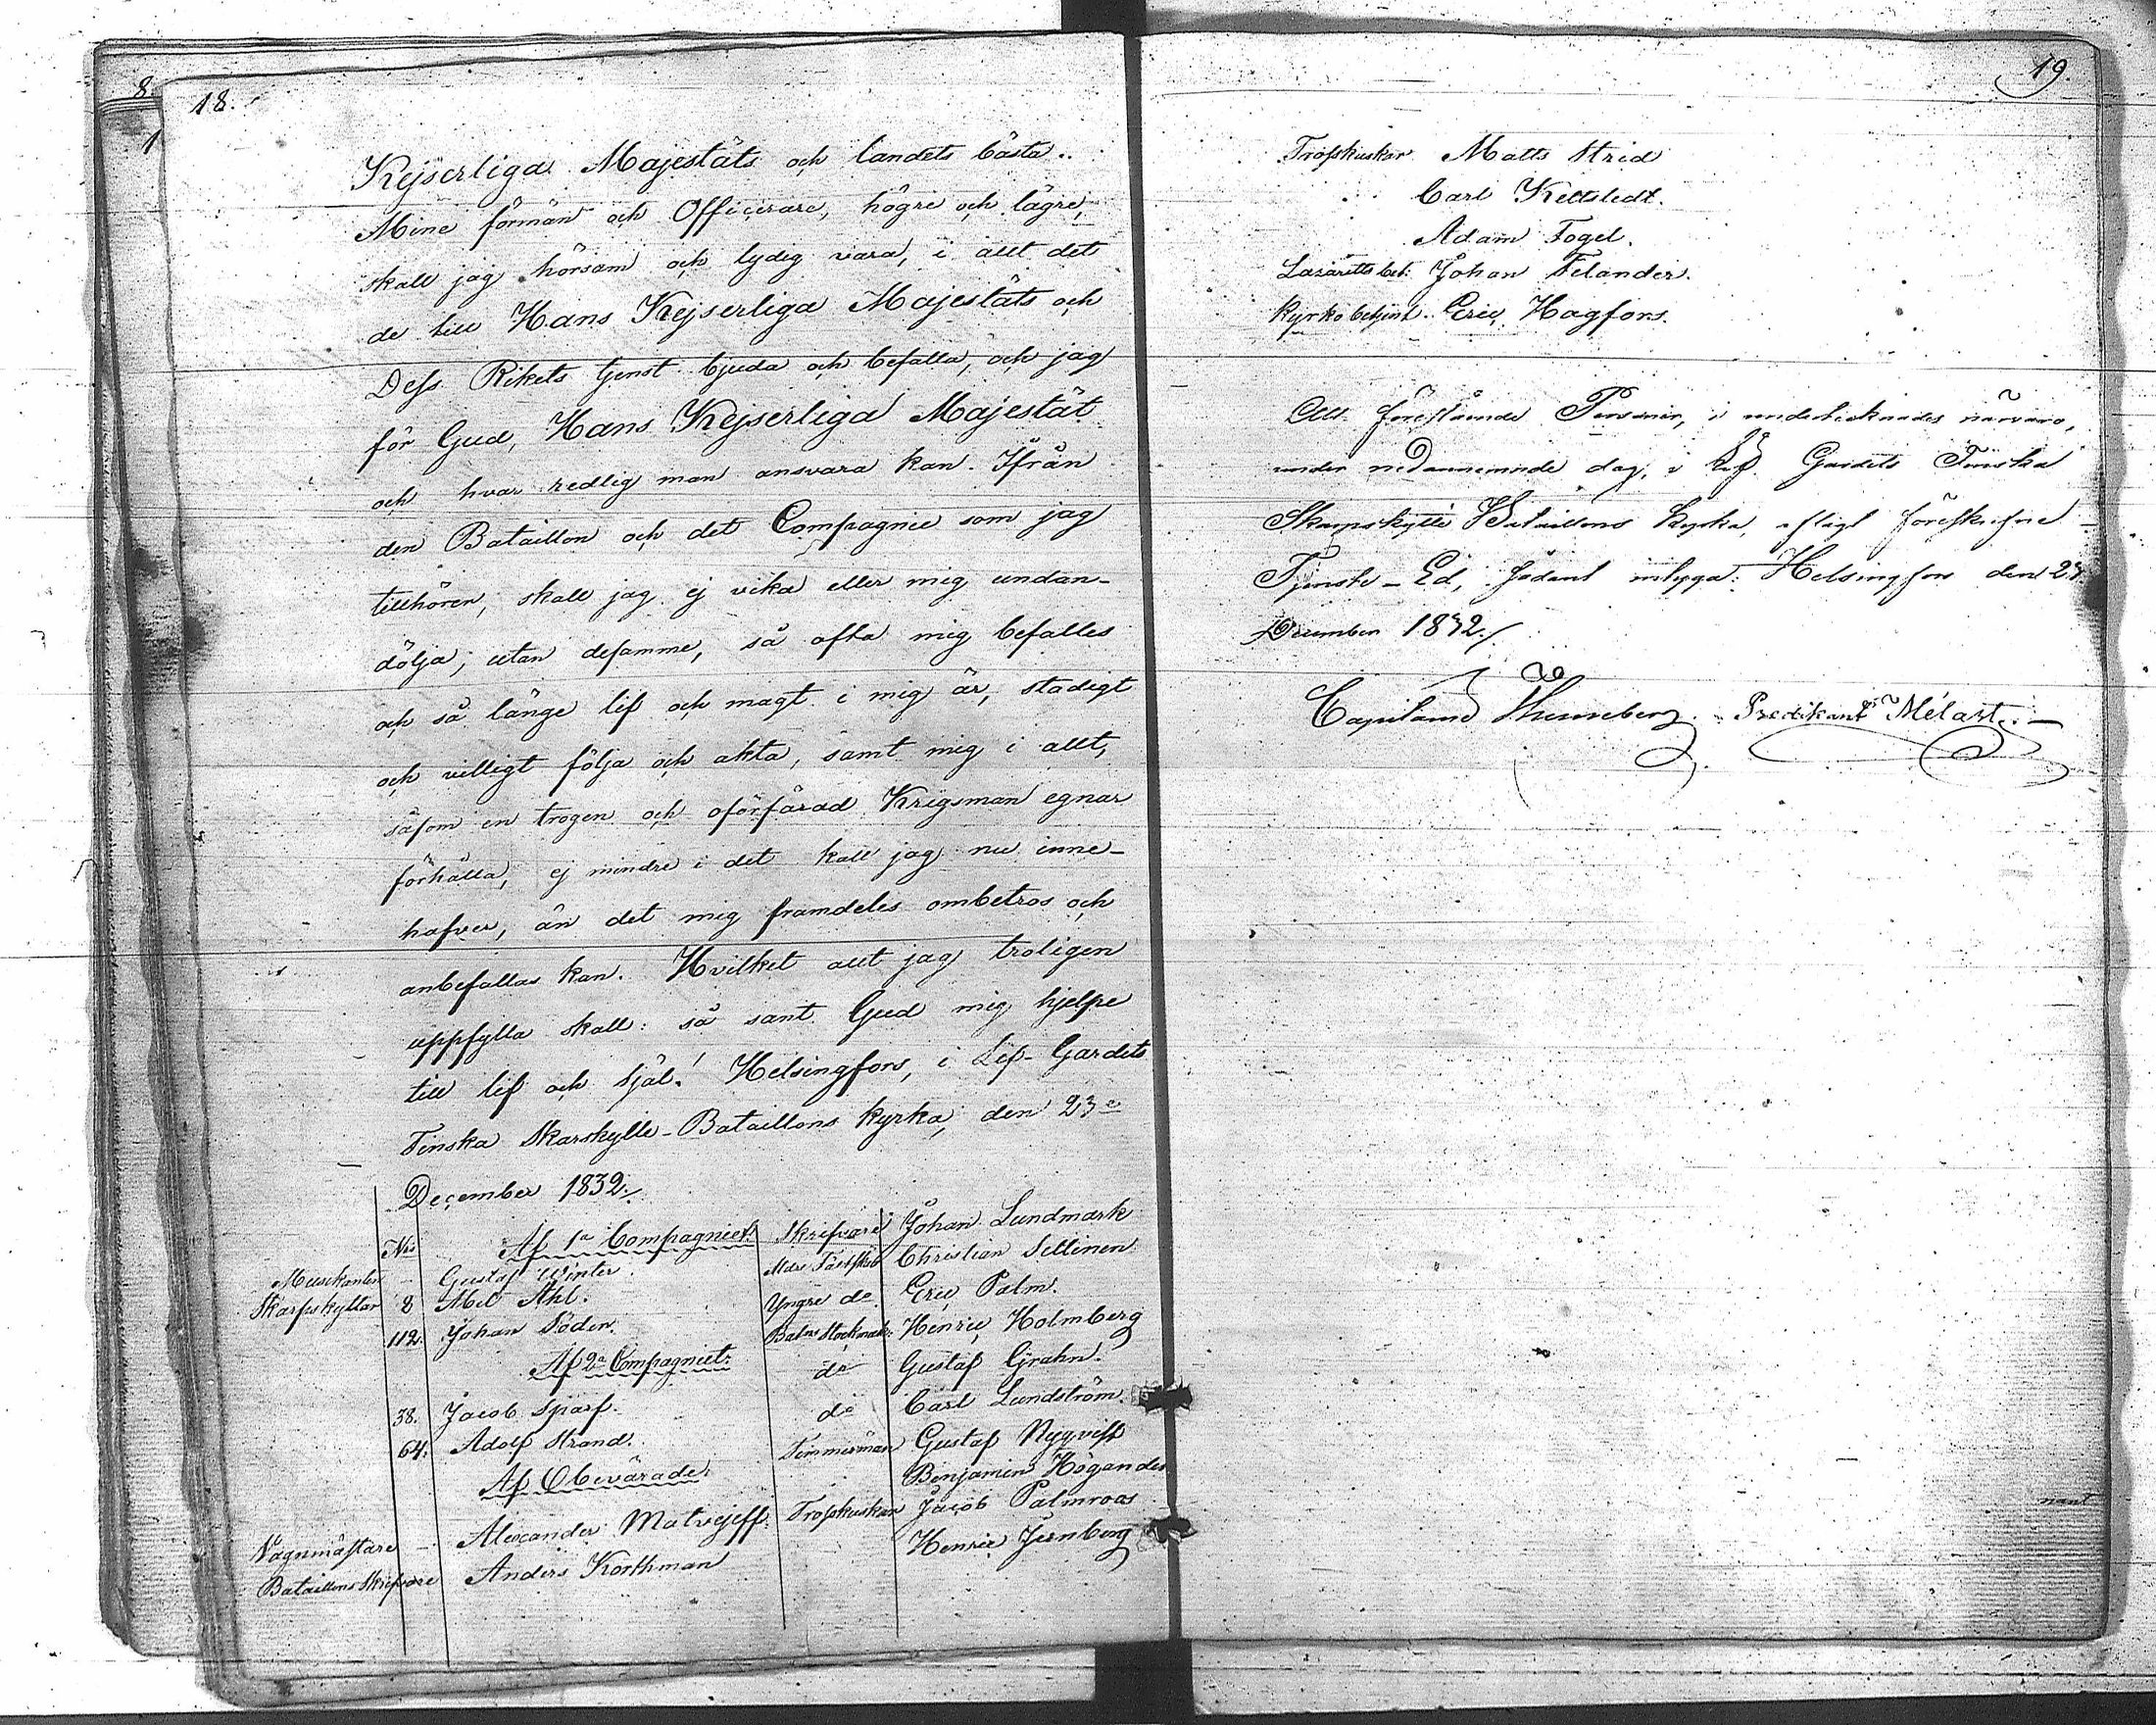 8.
18.
1
Kejserliga Majestäts och landets bästa.
Mine förmän och Officerare, högre och lägre,
skall jag hörsam och lydig vara, i allt det
de till Hans Kejserliga Majestäts och
Dess Rikets tjenst bjuda och befalla, och jag
för Gud, Hans Kejserliga Majestät
och hvar redlig man ansvara kan. Ifrån
den Bataillon och det Compagnie som jag
tillhörer, skall jag ej vika eller mig undan-
dölja; utan desamme, så ofta mig befalles
och så länge lif och magt i mig är, stadigt
och villigt följa och akta, samt mig i allt,
såsom en trogen och oförfärad Krigsman egnar
förhålla, ej mindre i det kall jag nu inne-
hafver, än det mig framdeles ombetros och
anbefallas kan. Hvilket allt jag troligen
uppfylla skall: så sant Gud mig hjelpe
till lif och själ! Helsingfors, i Lif-Gardets
Finska Skarskytte-Bataillons kyrka, den 23e
December 1832./.
Nris Af 1a Compagniet. Skrifvare Johan Lundmark
Musikanten – Gustaf Winter. Christian Sellinen
Skarpskyttar 8 Mel Ahl. Yngre do Eric Palm.
112. Johan Söder. Henric Holmberg
Af 2a Compagniet. do Gustaf Grahn.
38. Jacob Sparf. do Carl Lundström.
64. Adolf Strand. Timmerman Gustaf Nyqvist
Af Obevärade. Benjamin Högander
Vagnmästare – Alexander Matvejeff. Trosskuskar Jacob Palmroos
Bataillons Skrifvare Anders Korthman Henric Jernberg
19
Trosskuskar Matts Strid
Carl Kettstedt.
Adam Fogel.
Lazaretts bet: Johan Felander.
Kyrko betjent. Eric Hagfors.
Att förestående Personer, i undertecknades närvaro,
under nedannemnde dag, i Lif Gardets Finska
Skarpskytte Bataillons kyrka, aflagt föreskrifne
Tjenste-Ed, sådant intyga: Helsingfors den 23
December 1832./.
Capitaine Thuneberg. Predikant Mélart. –
nant